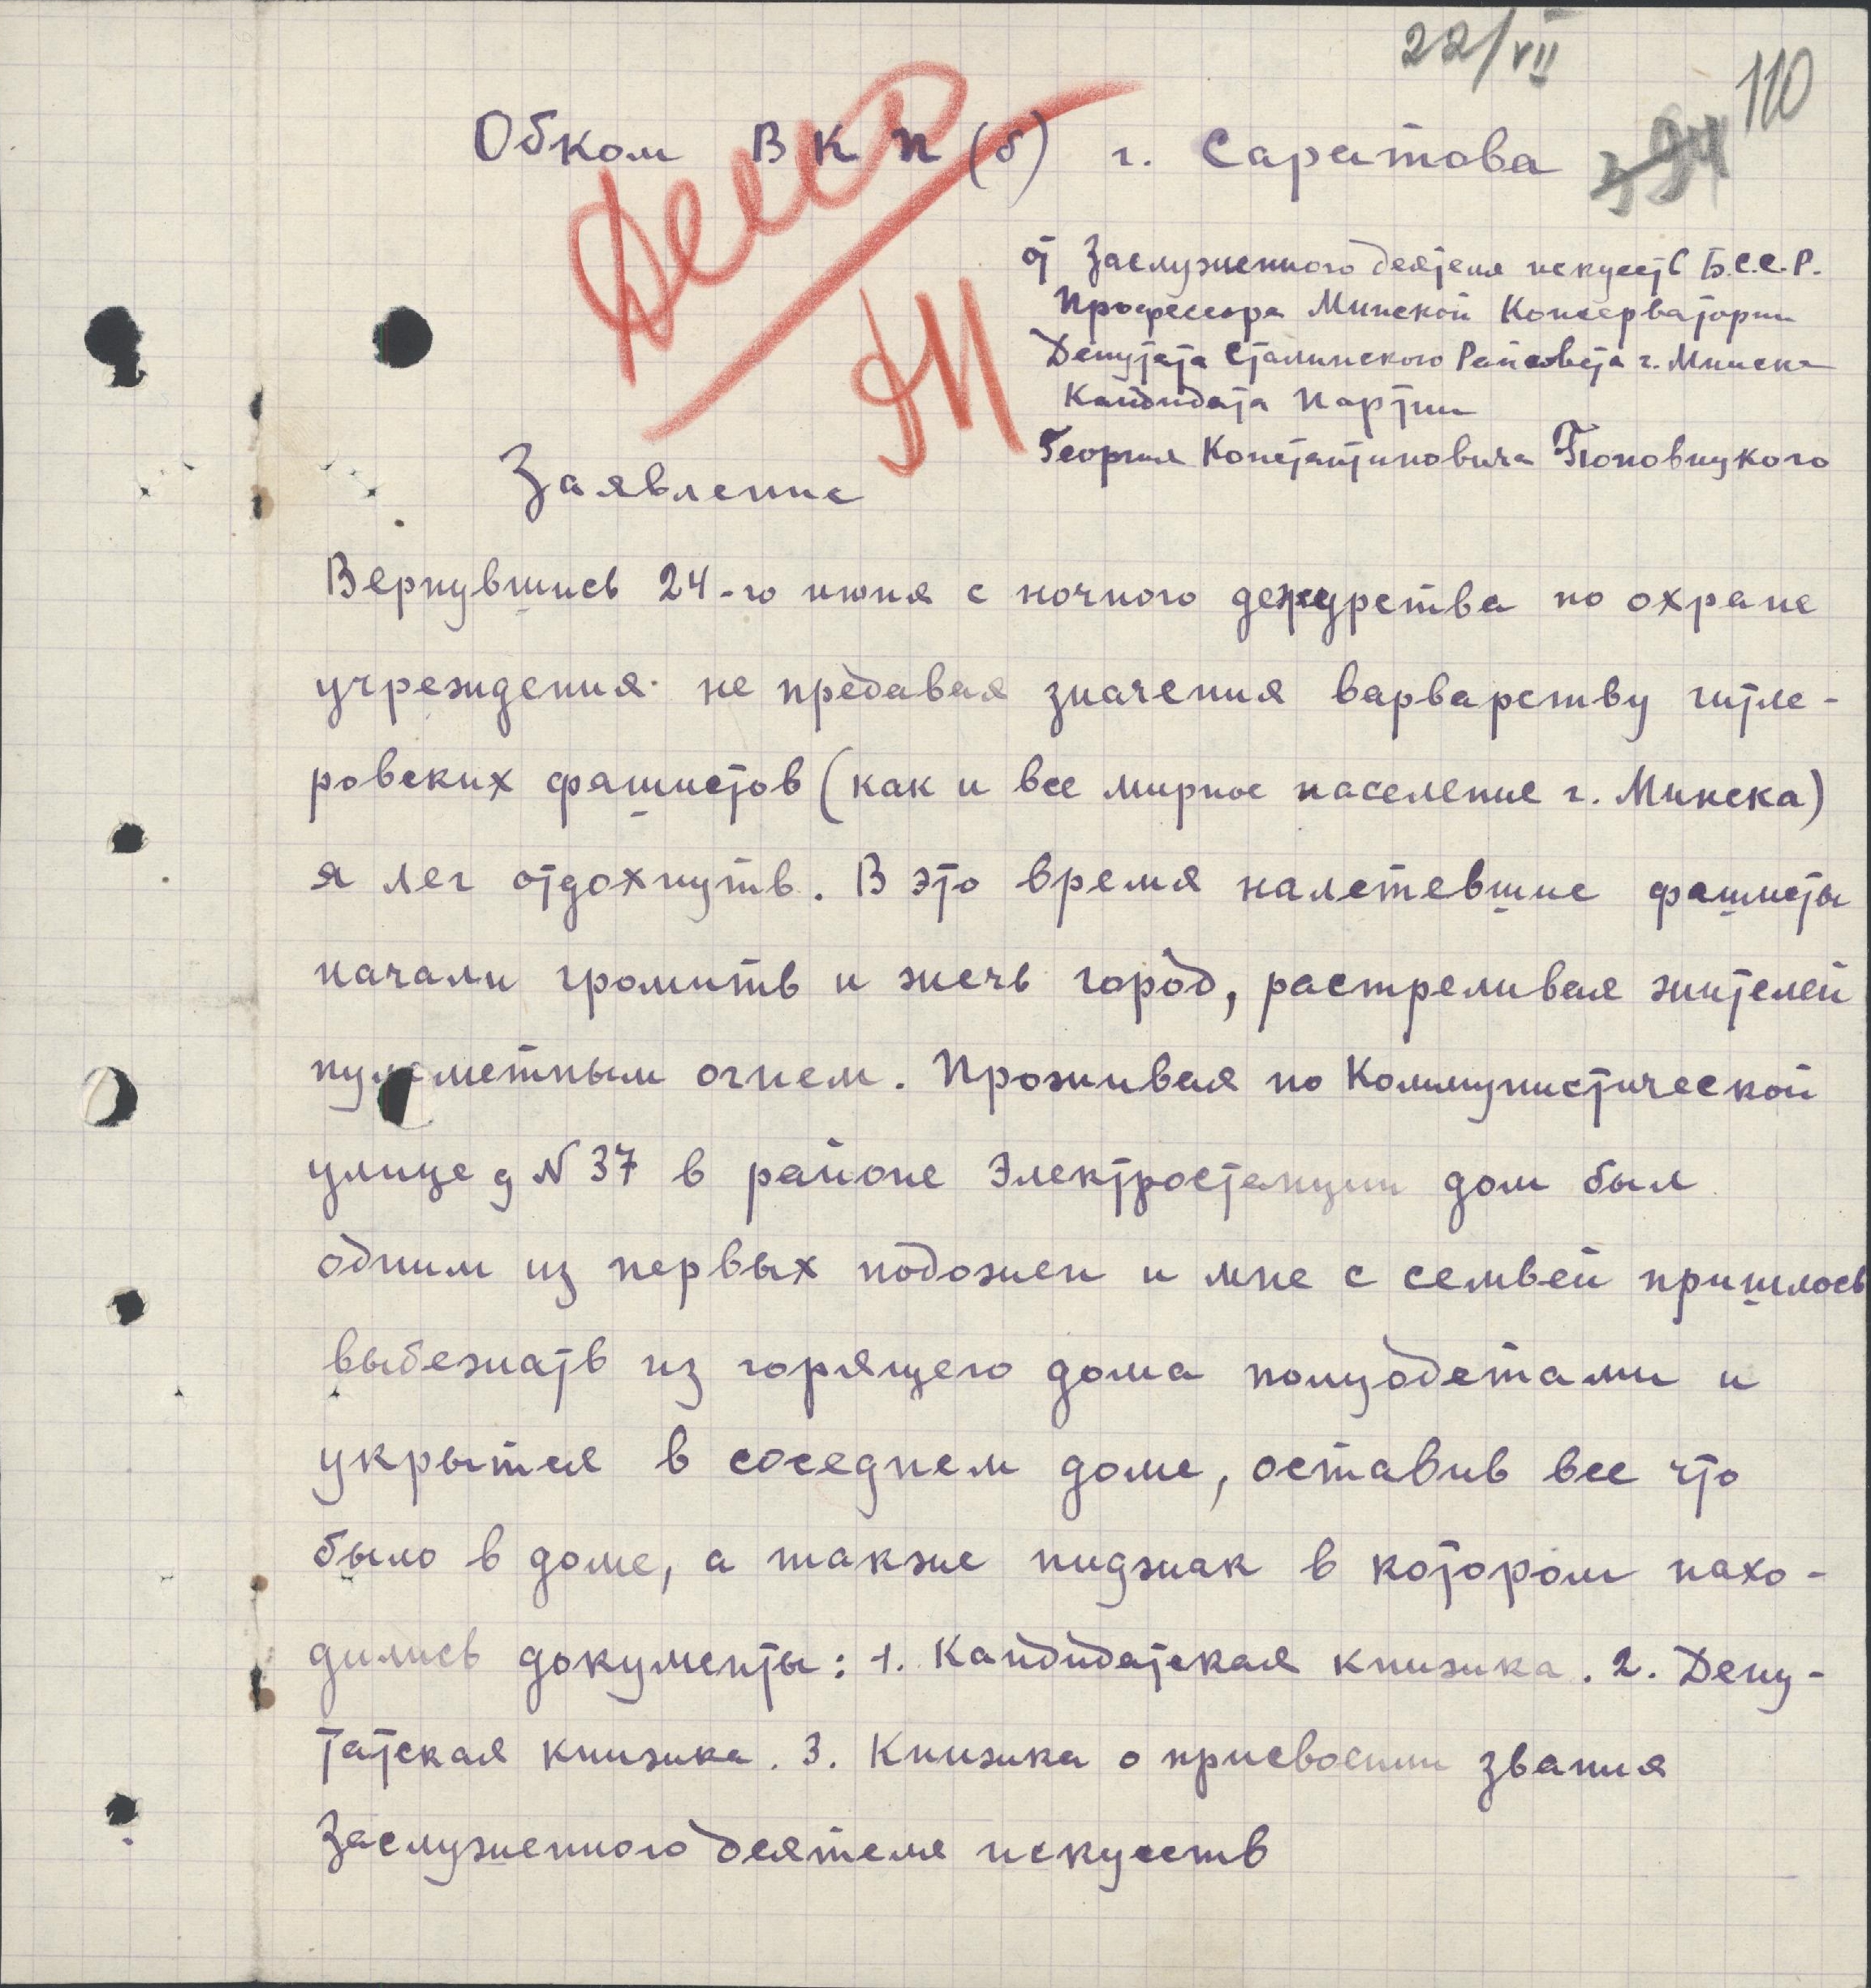 22/VII
110
Обком ВКП(б) г. Саратова
от Заслуженного деятеля искусств Б.С.С.Р.
Профессора Минской Консерватории
Депутата Сталинского Райсовета г. Минска
Кандидата Партии
Георгия Константиновича Поповицкого
Заявление
Вернувшись 24-го июня с ночного дежурства по охране
учреждения не предавая значения варварству гитле-
ровских фашистов (как и все мирное население г. Минска)
я лег отдохнуть. В это время налетевшие фашисты
начали громить и жечь город, растреливая жителей
пулеметным огнем. Проживая по Коммунистической
улице д N 37 в районе Электростанции дом был
одним из первых подожжен и мне с семьей пришлось
выбежать из горящего дома полуодетами и
укрытся в соседнем доме, оставив все что
было в доме, а также пиджак в котором нахо-
дились документы: 1. Кандидатская книжка. 2. Депу-
татская книжка. 3. Книжка о присвоении звания
Заслуженного деятеля искусств